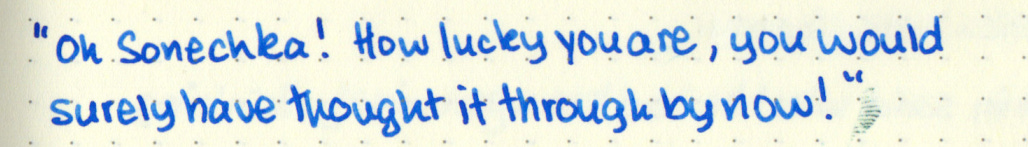 "Oh Sonechka! How lucky you are, you would
surely have thought it through by now!"